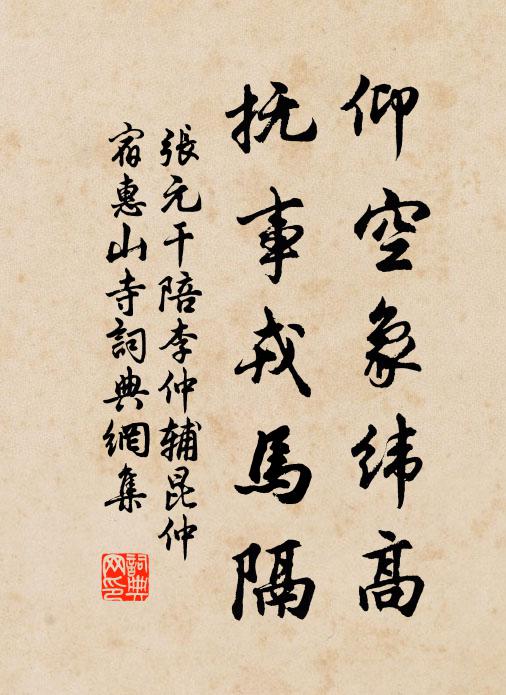 仰空象緯高
抚事戎馬隔
張元干陪李仲辅昆仲
宿惠山寺詞典網集
詞典
网印